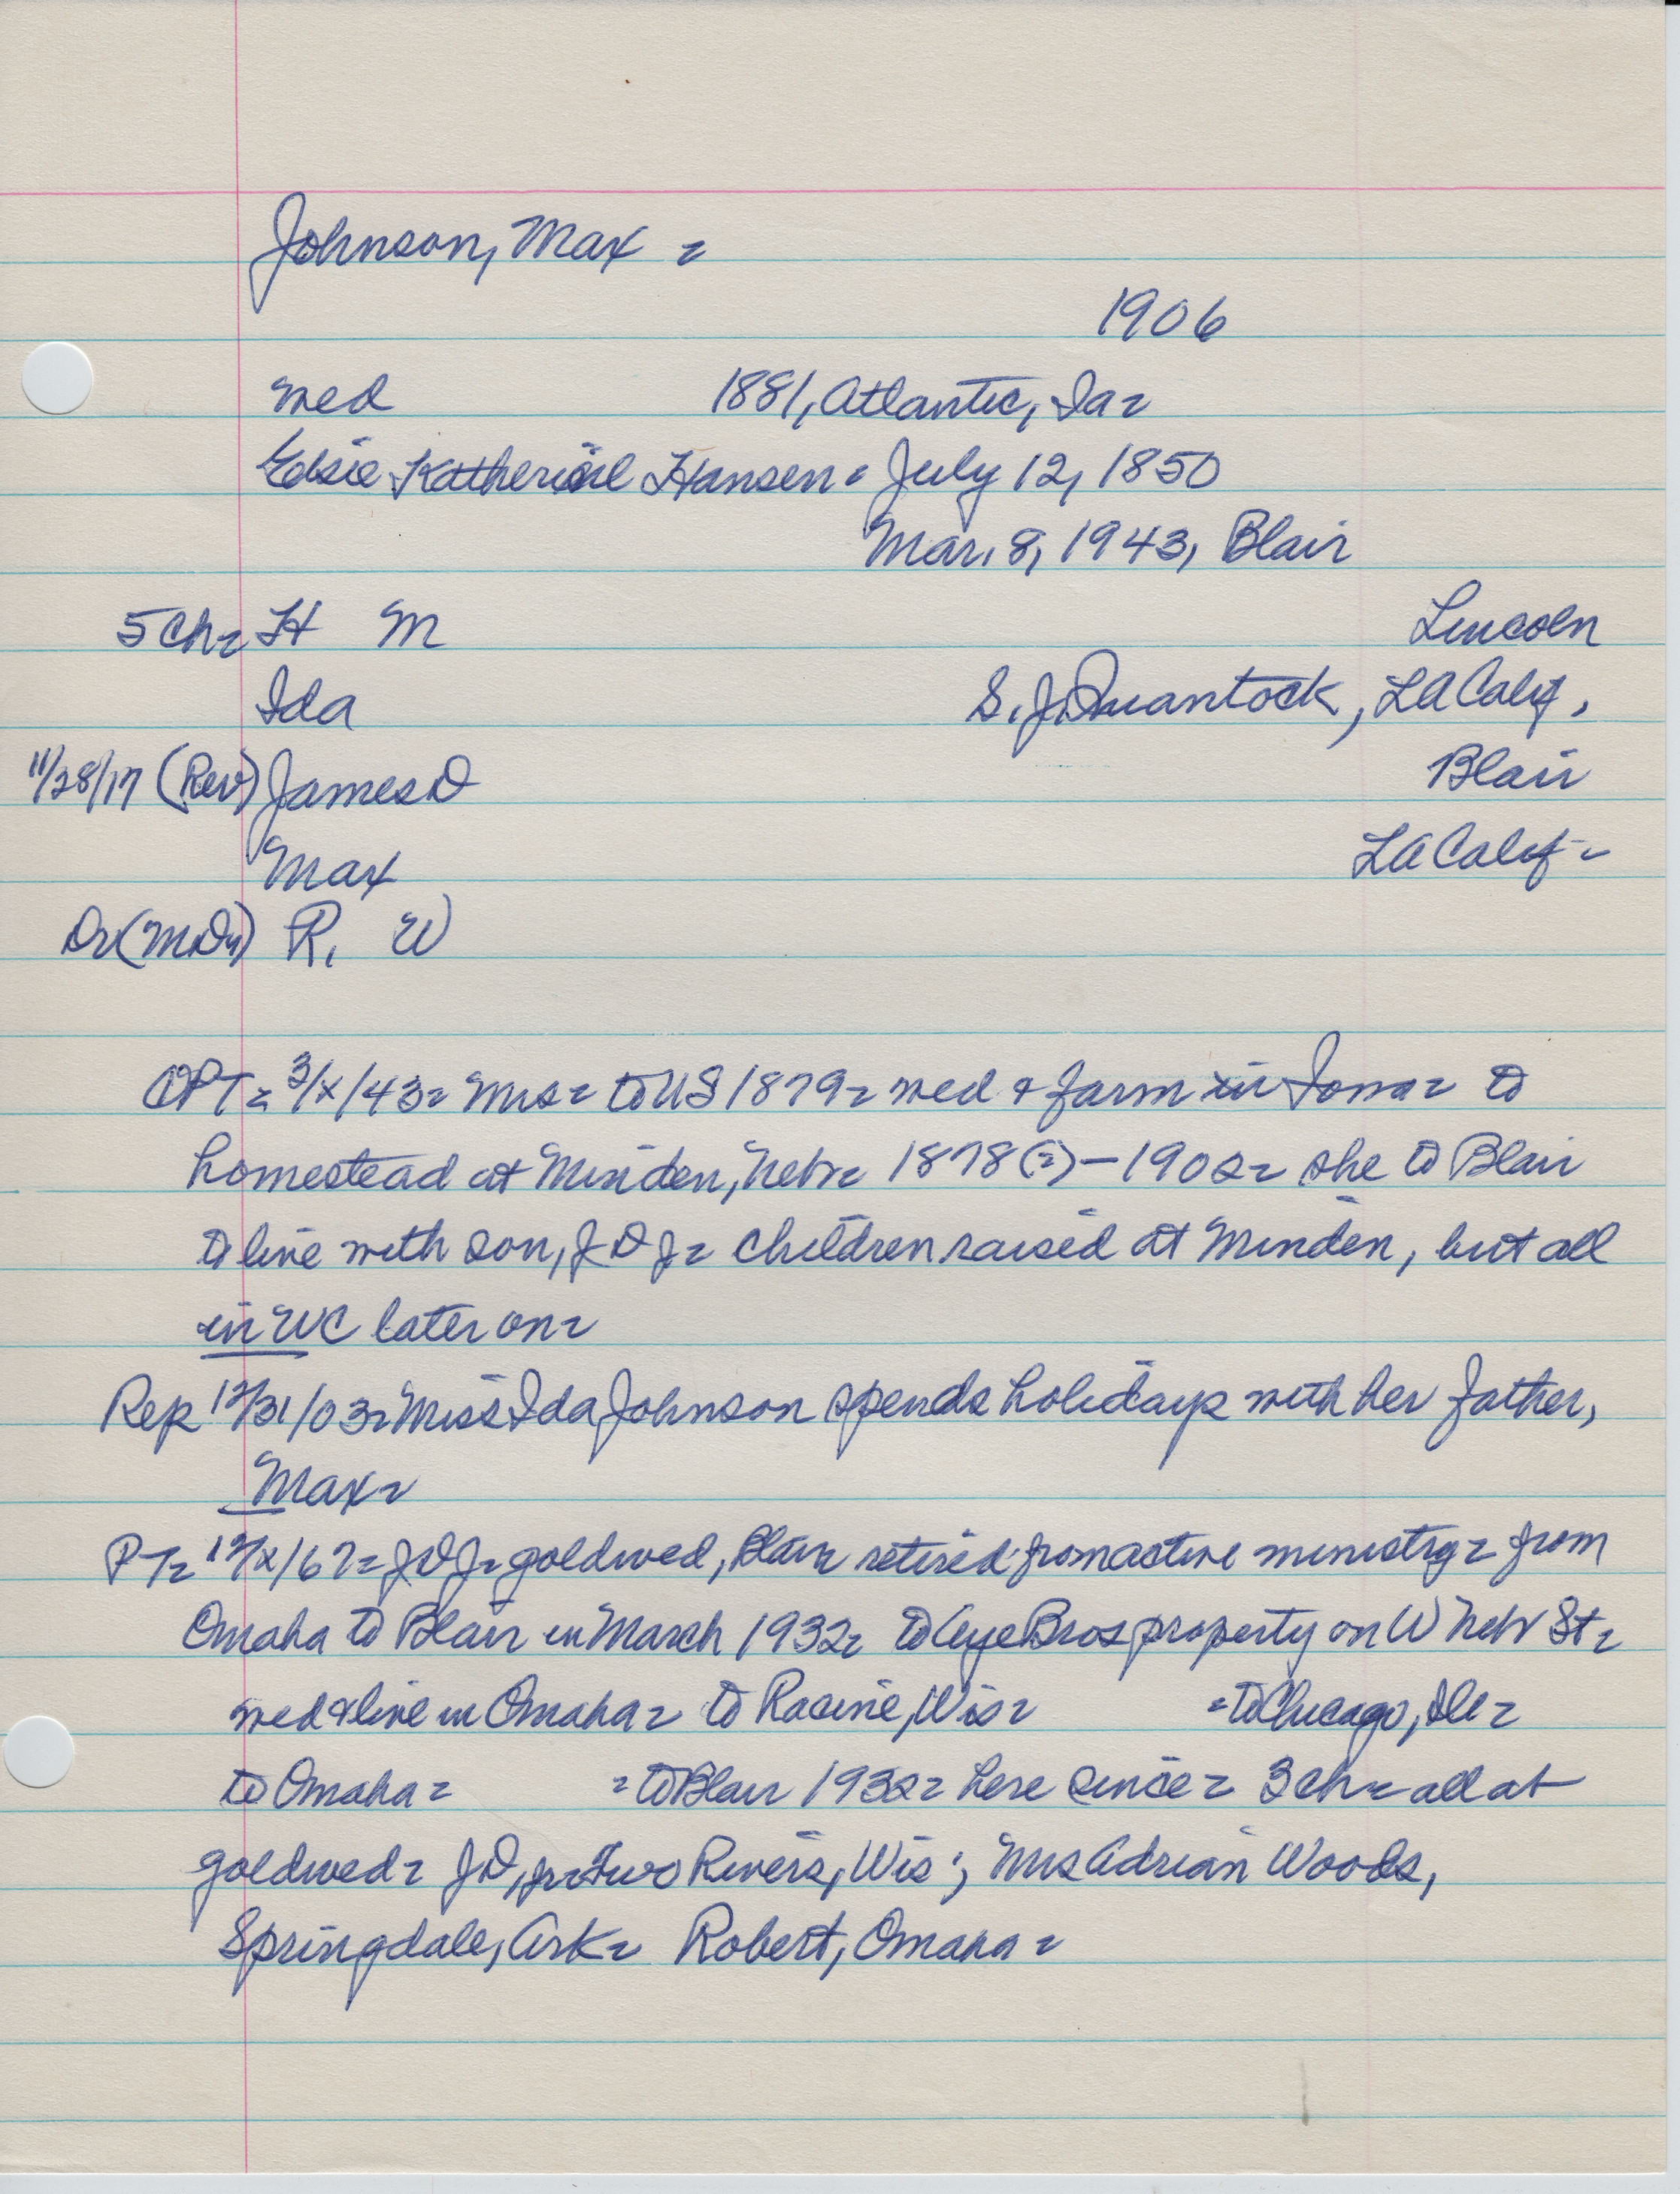 Johnson, Max =
1906
wed 1881, Atlantic, Ia =
Elsie Katherine Hansen = July 12, 1850
Mar. 8, 1943, Blair
5 Ch = H M Lincoln
Ida S. J. Quantock, LA Calif,
11/28/17 (Rev) James D Blair
Max LA Calif =
Dr (MD) R. W
OPT = 3/x/43 = Mrs = to US 1879 = wed & farm in Iowa = to
homestead at Minden, Nebr = 1878(?) - 1902 = she to Blair
to live with son, J D J = children raised at Minden, but all
in WC later on =
Rep 12/31/03 = Miss Ida Johnson spends holidays with her father,
Max =
PT = 12/x/67 = J D J = goldwed, Blair retired from active ministry = from
Omaha to Blair in March 1932 = to Aye Bros property on W Nebr St =
wed & live in Omaha = to Racine, Wis = = to Chicago, Ill =
to Omaha = = to Blair 1932 = here since = 3 ch = all at
goldwed = J D, jr = Two Rivers, Wis; Mrs Adrian Woods,
Springdale, Ark = Robert, Omaha =